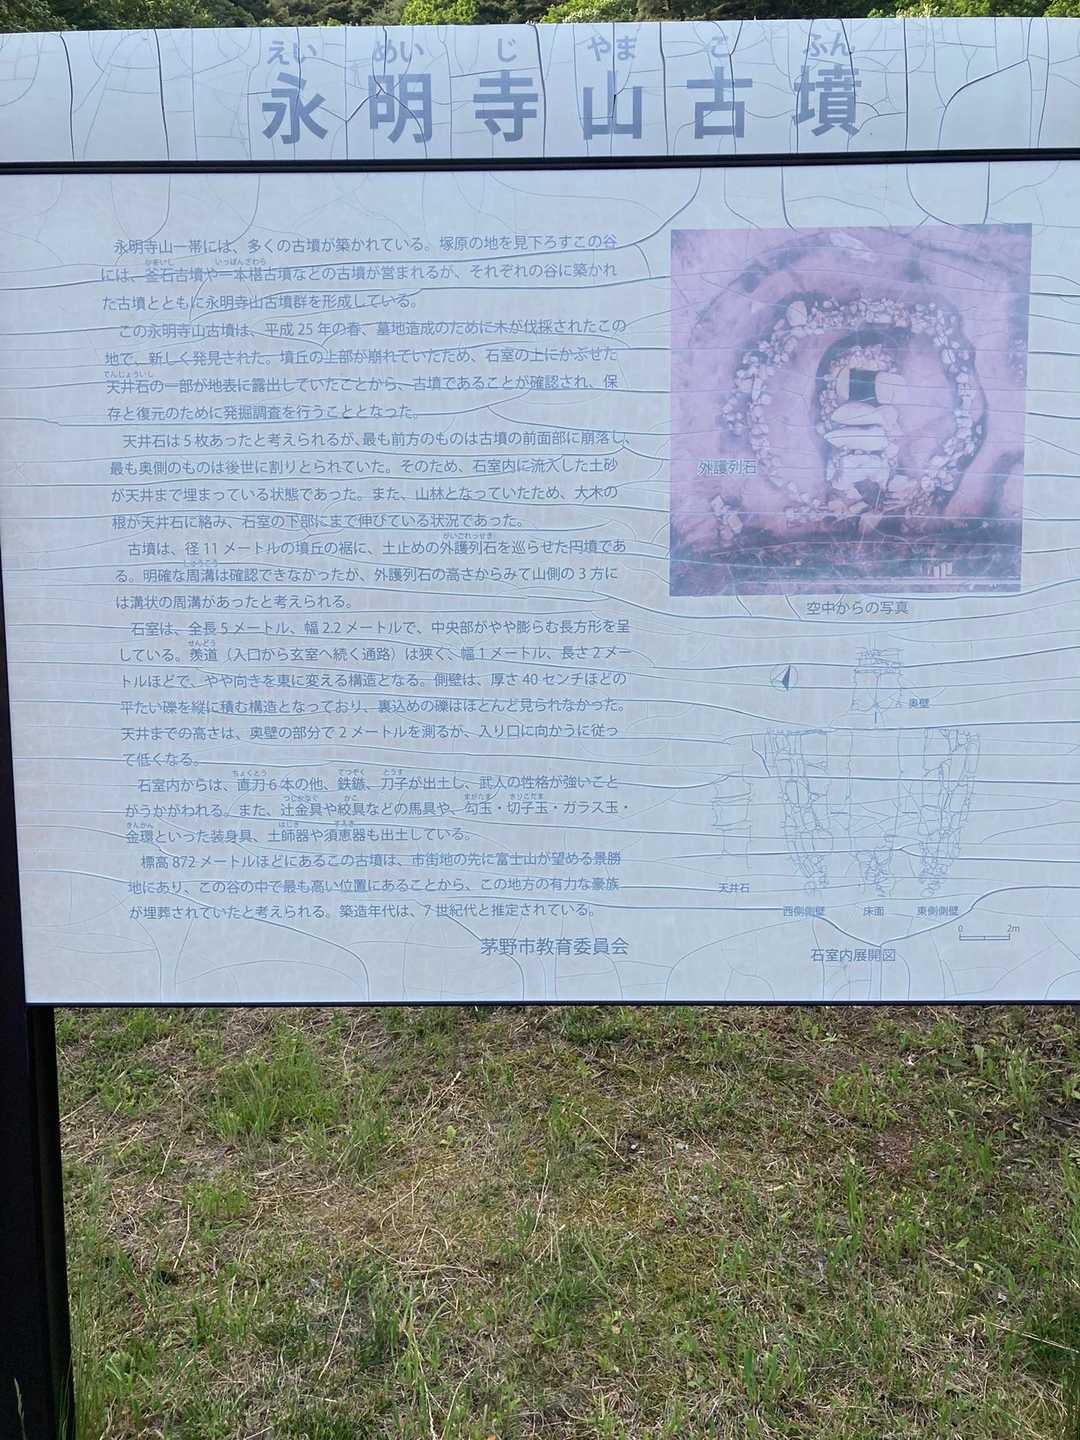 えい めい じ やま こ ふん
永明寺山古墳
永明寺山一帯には、多くの古墳が築かれている。塚原の地を見下ろすこの谷
かまいし いっぽんざわら
には、釜石古墳や一本椹古墳などの古墳が営まれるが、それぞれの谷に築かれ
た古墳とともに永明寺山古墳群を形成している。
この永明寺山古墳は、平成25年の春、墓地造成のために木が伐採されたこの
地で、新しく発見された。墳丘の上部が崩れていたため、石室の上にかぶせた
てんじょういし
天井石の一部が地表に露出していたことから、古墳であることが確認され、保
存と復元のために発掘調査を行うこととなった。
天井石は5枚あったと考えられるが、最も前方のものは古墳の前面部に崩落し、
最も奥側のものは後世に割りとられていた。そのため、石室内に流入した土砂
が天井まで埋まっている状態であった。また、山林となっていたため、大木の
根が天井石に絡み、石室の下部にまで伸びている状況であった。
がいごれっせき
古墳は、径11メートルの墳丘の裾に、土止めの外護列石を巡らせた円墳であ
しゅうこう
る。明確な周溝は確認できなかったが、外護列石の高さからみて山側の3方に
は溝状の周溝があったと考えられる。
石室は、全長5メートル、幅2.2メートルで、中央部がやや膨らむ長方形を呈
せんどう
している。羨道（入口から玄室へ続く通路）は狭く、幅1メートル、長さ2メー
トルほどで、やや向きを東に変える構造となる。側壁は、厚さ40センチほどの
平たい礫を縦に積む構造となっており、裏込めの礫はほとんど見られなかった。
天井までの高さは、奥壁の部分で2メートルを測るが、入り口に向かうに従っ
て低くなる。
ちょくとう てつぞく とうす
石室内からは、直刀6本の他、鉄鏃、刀子が出土し、武人の性格が強いこと
つじかなぐ かこ まがたま きりこだま
がうかがわれる。また、辻金具や鉸具などの馬具や、勾玉・切子玉・ガラス玉・
きんかん はじき すえき
金環といった装身具、土師器や須恵器も出土している。
標高872メートルほどにあるこの古墳は、市街地の先に富士山が望める景勝
地にあり、この谷の中で最も高い位置にあることから、この地方の有力な豪族
が埋葬されていたと考えられる。築造年代は、7世紀代と推定されている。
茅野市教育委員会
外護列石
空中からの写真
奥壁
天井石
西側側壁 床面 東側側壁
0 2m
石室内展開図